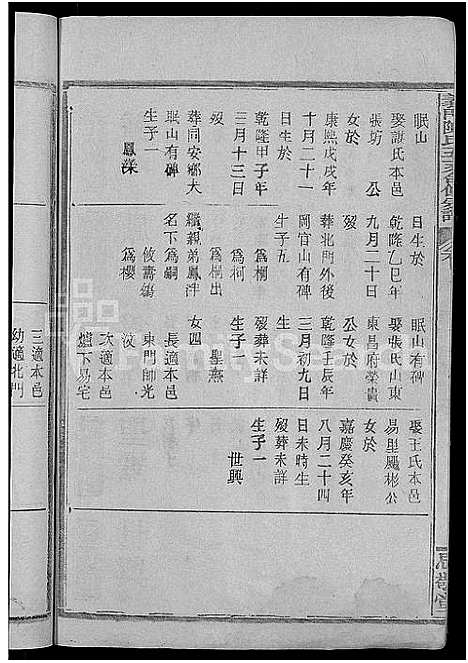 眠山
娶謝氏本邑
張坊　公
女於
康熙戊戌年
十月二十一
乾隆甲子年
三月十三日
歿
葬同安鄉大
眠山有碑
生子一
鳳深
日生於
乾隆乙巳年
九月二十日
歿
葬北門外後
岡官山有碑
生子五
為桐
為柯
為楓出
繼親弟鳳泮
名下為嗣
攸壽鵷
為櫻
眠山有碑
娶張氏山東
東昌府榮貴
公女於
乾隆壬辰年
三月初九日
歿葬未詳
生子一
聖燕
女四
長適本邑
東門帥光
汶
次適本邑
爐下易宅
三適本邑
幼適北門
娶王氏本邑
易里颺彬公
女於
嘉慶癸亥年
八月二十四
日未時生
歿葬未詳
生子一
世興